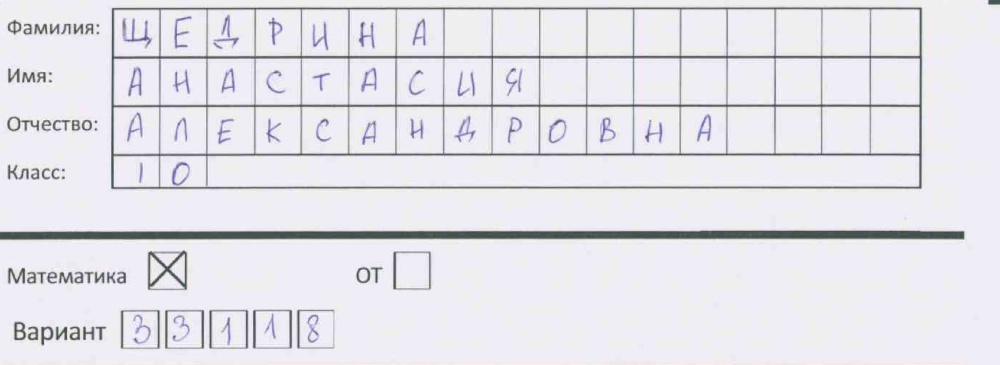 Фамилия: ЩЕДРИНА
Имя: АНАСТАСИЯ
Отчество: АЛЕКСАНДРОВНА
Класс: 10
Математика ОТ
Вариант 33118